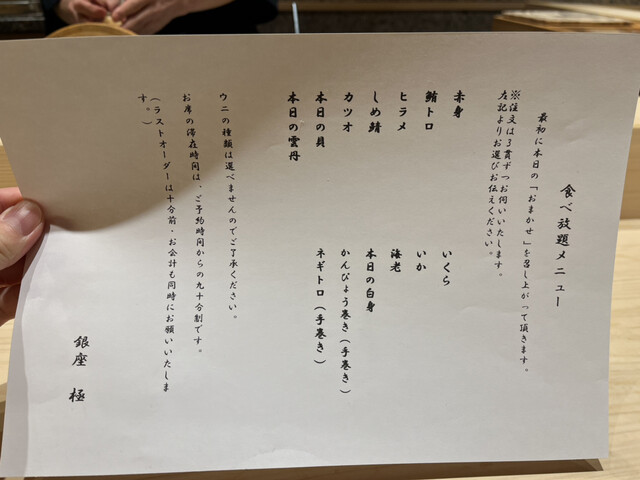 食べ放題メニュー
最初に本日の「おまかせ」を召し上がって頂きます。
※注文は3貫ずつお伺いいたします。
左記よりお選びお伝えください。
赤身
鮪トロ
ヒラメ
しめ鯖
カツオ
本日の貝
本日の雲丹
いくら
いか
海老
本日の白身
かんぴょう巻き(手巻き)
ネギトロ(手巻き)
ウニの種類は選べませんのでご了承ください。
お席の滞在時間は、ご予約時間からの九十分制です。
(ラストオーダーは十分前・お会計も同時にお願いいたしま
す。)
銀座 極